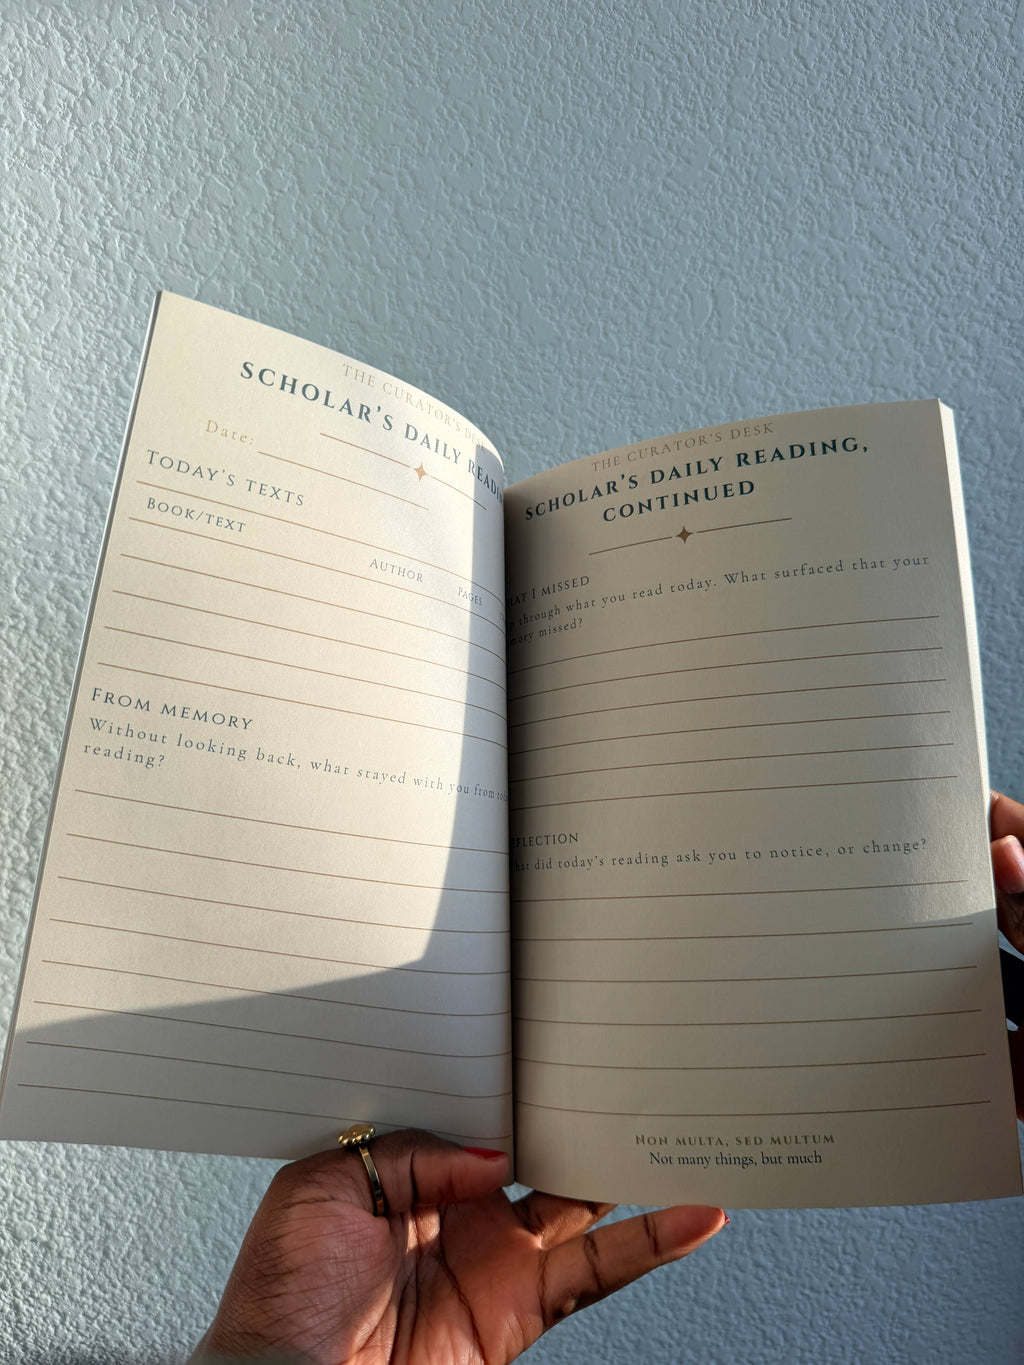 THE CURATOR'S DESK
SCHOLAR'S DAILY
Date:
TODAY'S TEXTS
BOOK/TEXT
AUTHOR
PAGES
FROM MEMORY
Without looking back, what stayed with you from
reading?
THE CURATOR'S DESK
SCHOLAR'S DAILY READING,
CONTINUED
I MISSED
through what you read today. What surfaced that your
missed?
did today's reading ask you to notice, or change?
NON MULTA, SED MULTUM
Not many things, but much